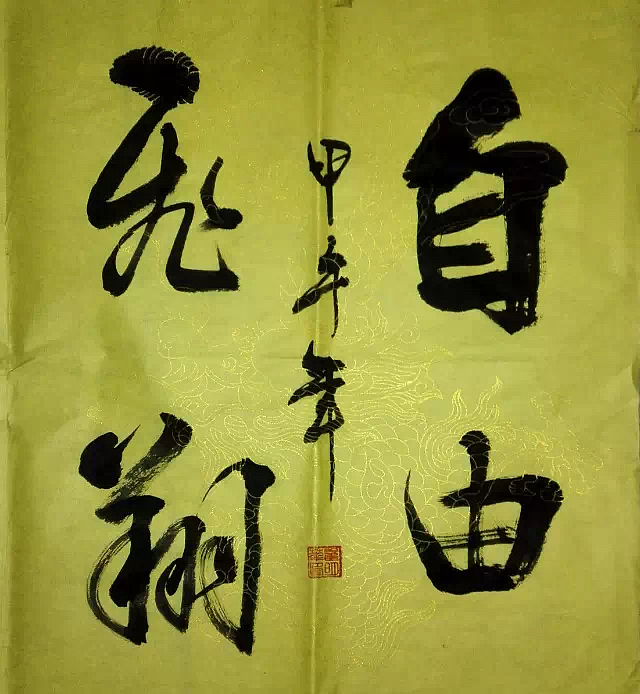 自由
飞翔
甲午年